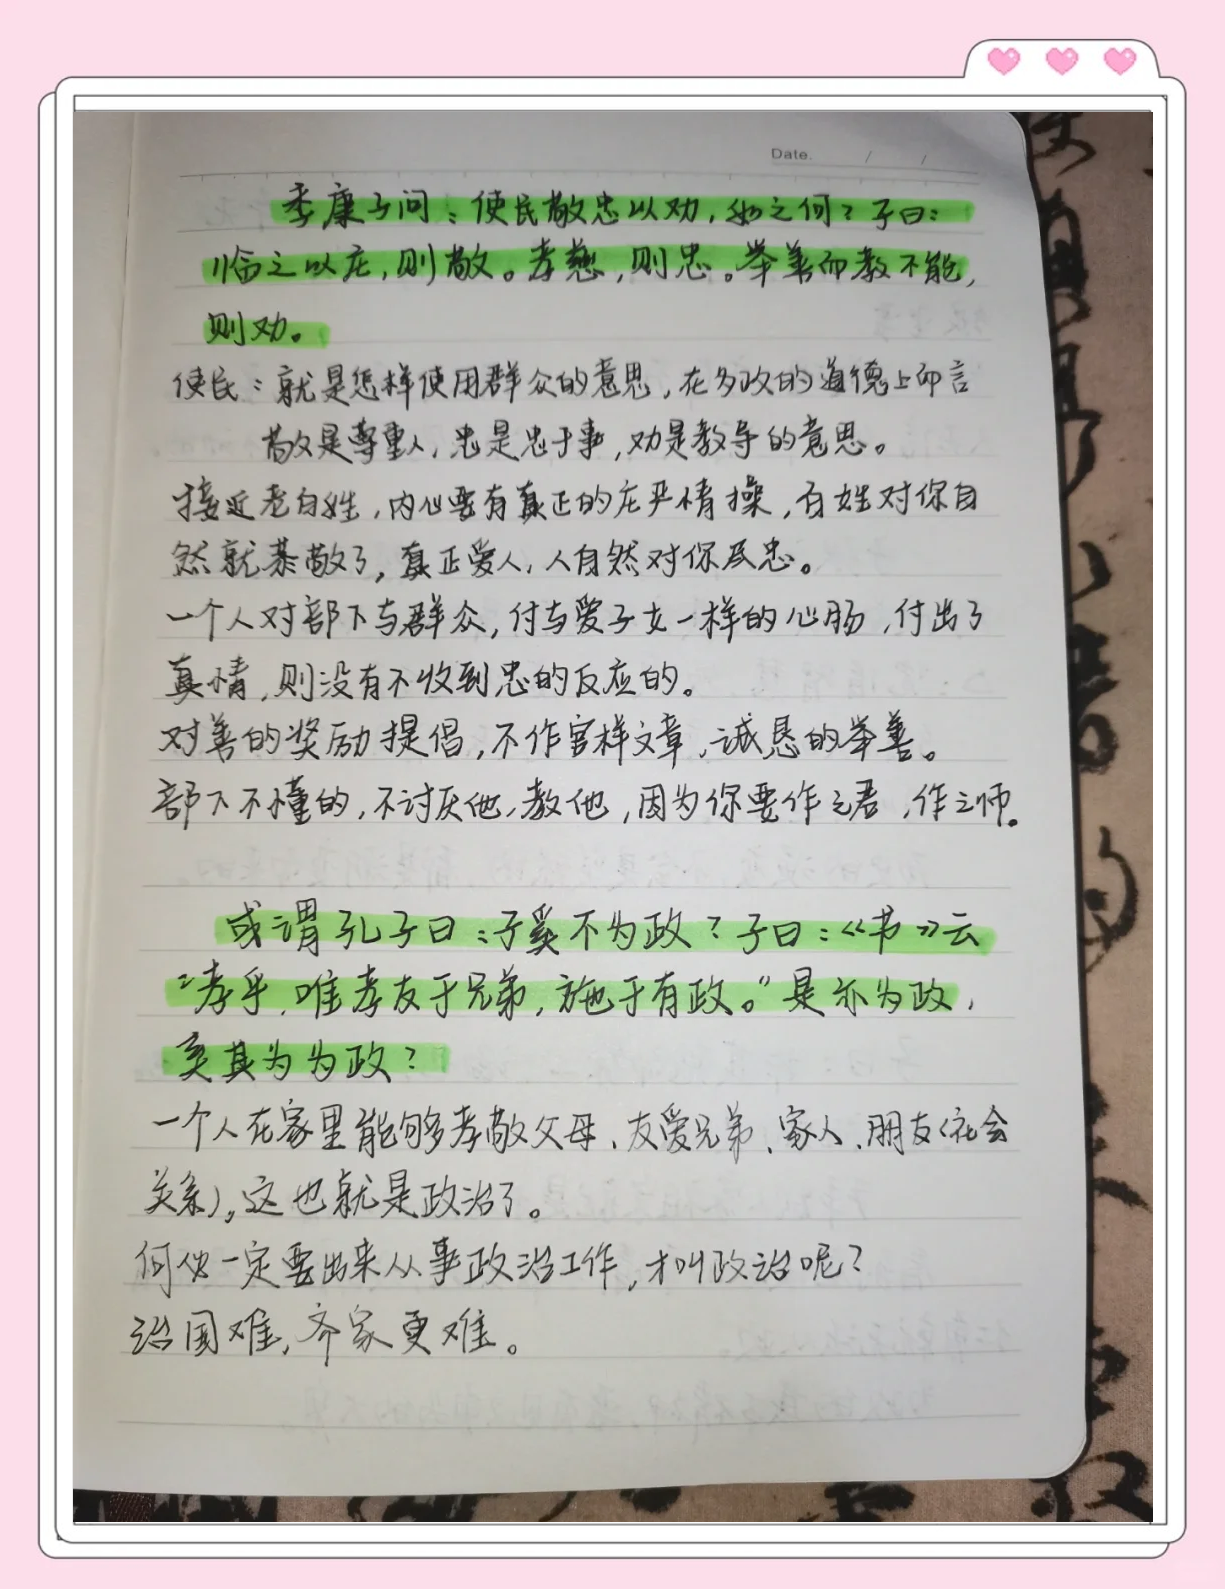 Date. / /
季康子问:使民敬忠以劝,如之何?子曰:
临之以庄,则敬。孝慈,则忠。举善而教不能,
则劝。
使民:就是怎样使用群众的意思,在为政的道德上而言
敬是尊重人,忠是忠于事,劝是教导的意思。
接近老百姓,内心要有真正的庄严情操,百姓对你自
然就恭敬了,真正爱人,人自然对你尽忠。
一个人对部下与群众,付与爱子女一样的心肠,付出了
真情,则没有不收到忠的反应的。
对善的奖励提倡,不作官样文章,诚恳的举善。
部下不懂的,不讨厌他,教他,因为你要作之君,作之师。
或谓孔子曰:子奚不为政?子曰:《书》云
“孝乎,唯孝友于兄弟,施于有政。”是亦为政,
奚其为为政?
一个人在家里能够孝敬父母、友爱兄弟、家人、朋友(社会
关系),这也就是政治了。
何必一定要出来从事政治工作,才叫政治呢?
治国难,齐家更难。